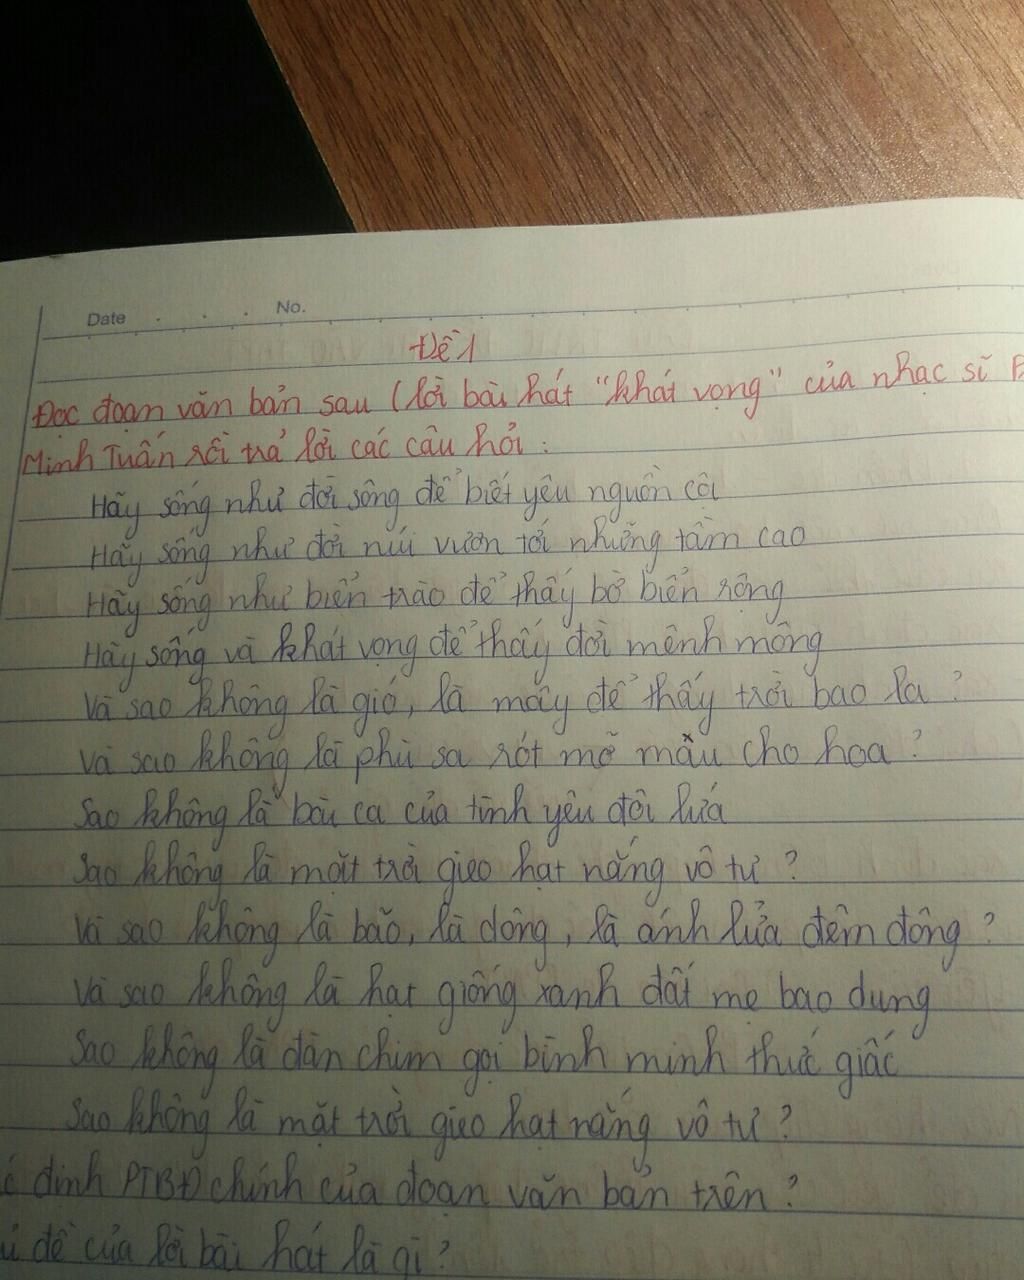 Date No.
Đề 1
Đọc đoạn văn bản sau (lời bài hát "khát vọng" của nhạc sĩ
Minh Tuấn rồi trả lời các câu hỏi :
Hãy sống như đời sông để biết yêu nguồn cội
Hãy sống như đời núi vươn tới những tầm cao
Hãy sống như biển trào để thấy bờ biển rộng
Hãy sống và khát vọng để thấy đời mênh mông
Và sao không là gió, là mây để thấy trời bao la ?
Và sao không là phù sa rót mỡ mầu cho hoa ?
Sao không là bài ca của tình yêu đôi lứa
Sao không là mặt trời gieo hạt nắng vô tư ?
Và sao không là bão, là dông, là ánh lửa đêm đông ?
Và sao không là hạt giống xanh đất mẹ bao dung
Sao không là đàn chim gọi bình minh thức giấc
Sao không là mặt trời gieo hạt nắng vô tư ?
định PTBĐ chính của đoạn văn bản trên ?
đề của lời bài hát là gì ?